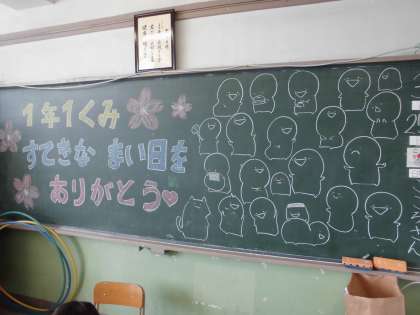 1年1くみ
すてきな まい日を
ありがとう♡